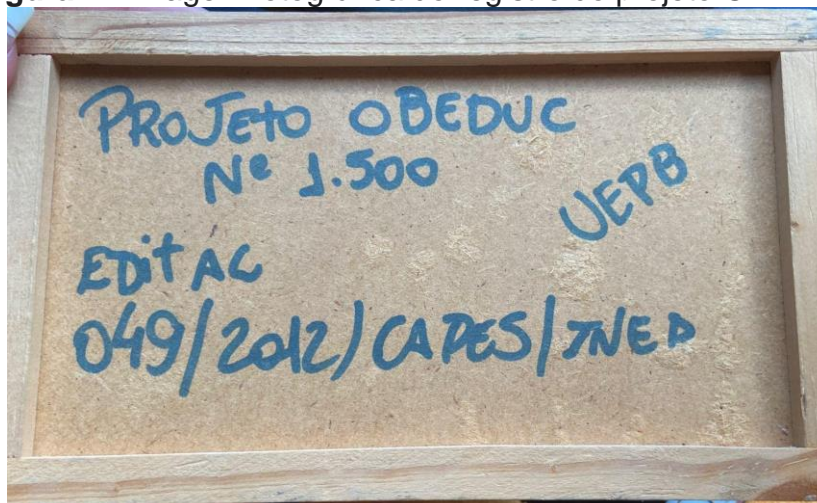 PROJETO OBEDUC
Nº 1.500
UEPB
EDITAL
049/2012/CAPES/INEP